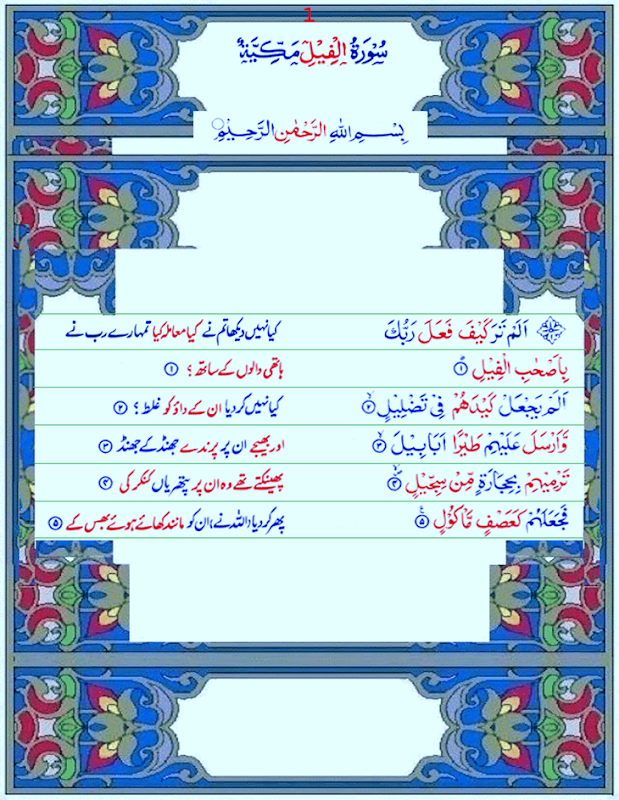 1
سُوْرَةُ الْفِيْلِ مَكِّيَّةٌ
بِسْمِ اللّٰهِ الرَّحْمٰنِ الرَّحِيْمِ
اَلَمْ تَرَ كَيْفَ فَعَلَ رَبُّكَ کیا نہیں دیکھا تم نے کیا معاملہ کیا تمہارے رب نے
بِاَصْحٰبِ الْفِيْلِ ۱ ہاتھی والوں کے ساتھ ؟ ۱
اَلَمْ يَجْعَلْ كَيْدَهُمْ فِيْ تَضْلِيْلٍ ۲ کیا نہیں کر دیا ان کے داؤ کو غلط ؟ ۲
وَّاَرْسَلَ عَلَيْهِمْ طَيْرًا اَبَابِيْلَ ۳ اور بھیجے ان پر پرندے جھنڈ کے جھنڈ ۳
تَرْمِيْهِمْ بِحِجَارَةٍ مِّنْ سِجِّيْلٍ ۴ پھینکتے تھے وہ ان پر پتھریاں کنکر کی ۴
فَجَعَلَهُمْ كَعَصْفٍ مَّاْكُوْلٍ ۵ پھر کر دیا (اللہ نے) ان کو مانند کھائے ہوئے بھس کے ۵